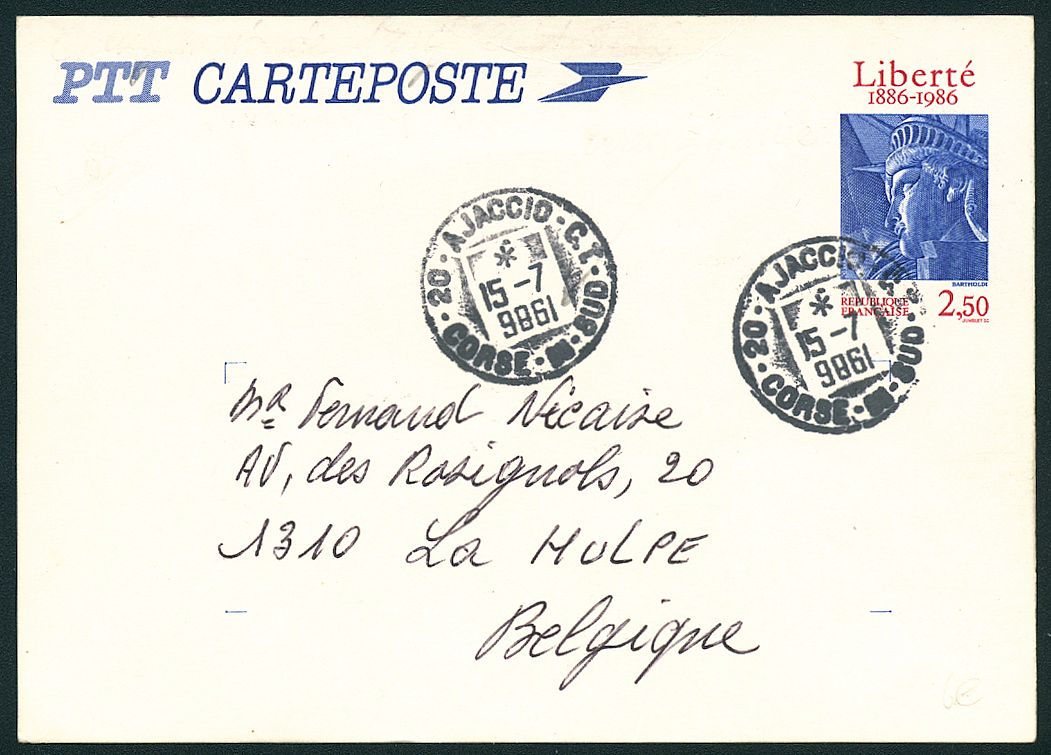 PTT CARTEPOSTE
Liberté
1886-1986
BARTHOLDI
REPUBLIQUE
FRANÇAISE
2,50
JUMELET SC
20 · AJACCIO · C.T. · SUD · CORSE ·
*
15 -7
1986
20 · AJACCIO SUD · CORSE ·
*
15 -7
1986
Mr Fernand Nécaise
AV, des Rosignols, 20
1310 La HULPE
Belgique
6€